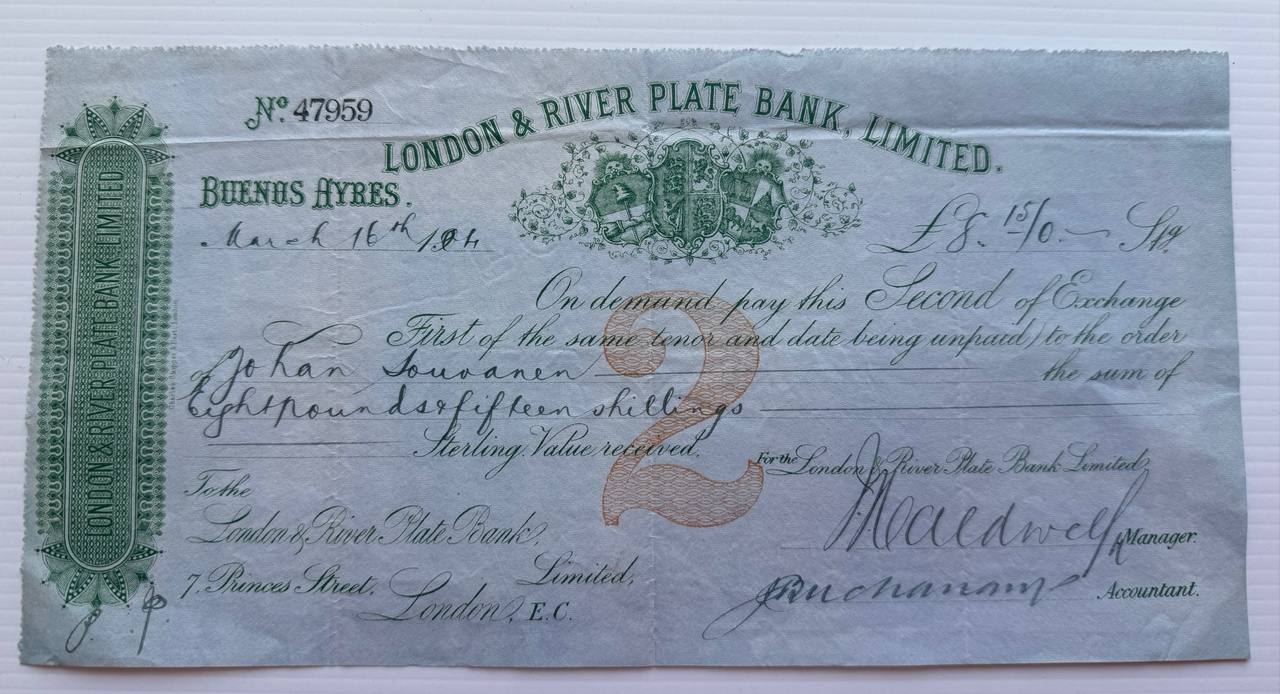 No. 47959
LONDON & RIVER PLATE BANK, LIMITED.
BUENOS AYRES.
March 16th
£8. 15/0 Stg
On demand pay this Second of Exchange
First of the same tenor and date being unpaid) to the order
of Johan Souvanen the sum of
Eight pounds & fifteen shillings
Sterling. Value received.
For the London & River Plate Bank Limited
To the
London & River Plate Bank,
Limited,
7, Princes Street,
London, E.C.
Caldwell Manager.
Buchanan Accountant.
LONDON & RIVER PLATE BANK, LIMITED
2